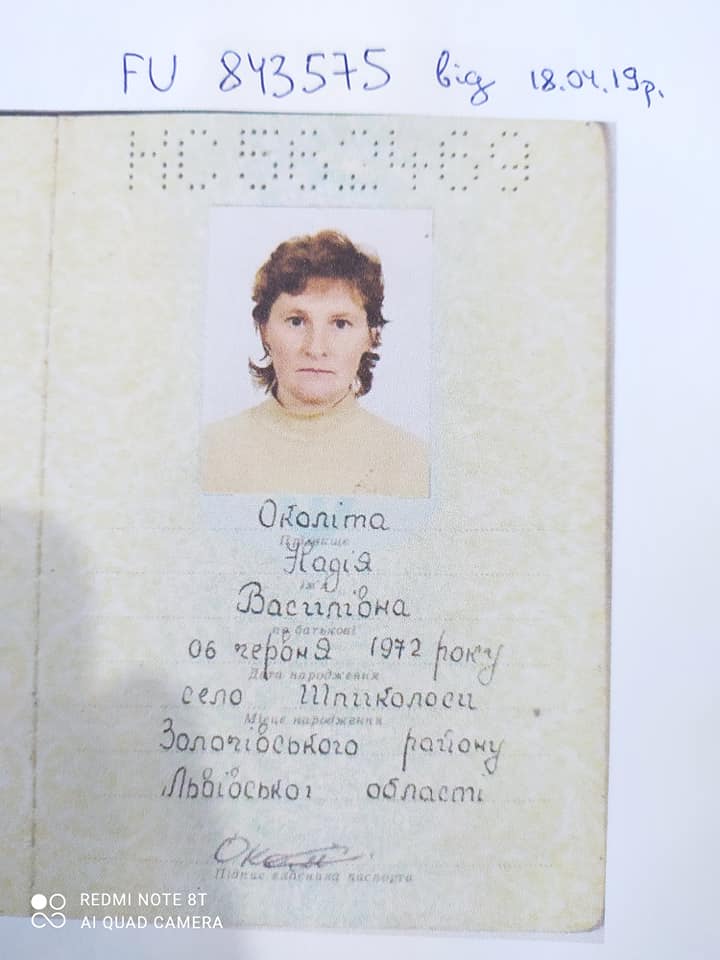 FU 843575 від 18.04.19р.
КС562469
Околіта
Прізвище
Надія
Ім'я
Василівна
по батькові
06 червня 1972 року
Дата народження
село Шпиколоси
Місце народження
Золочівського району
Львівської області
Підпис власника паспорта
REDMI NOTE 8T
AI QUAD CAMERA